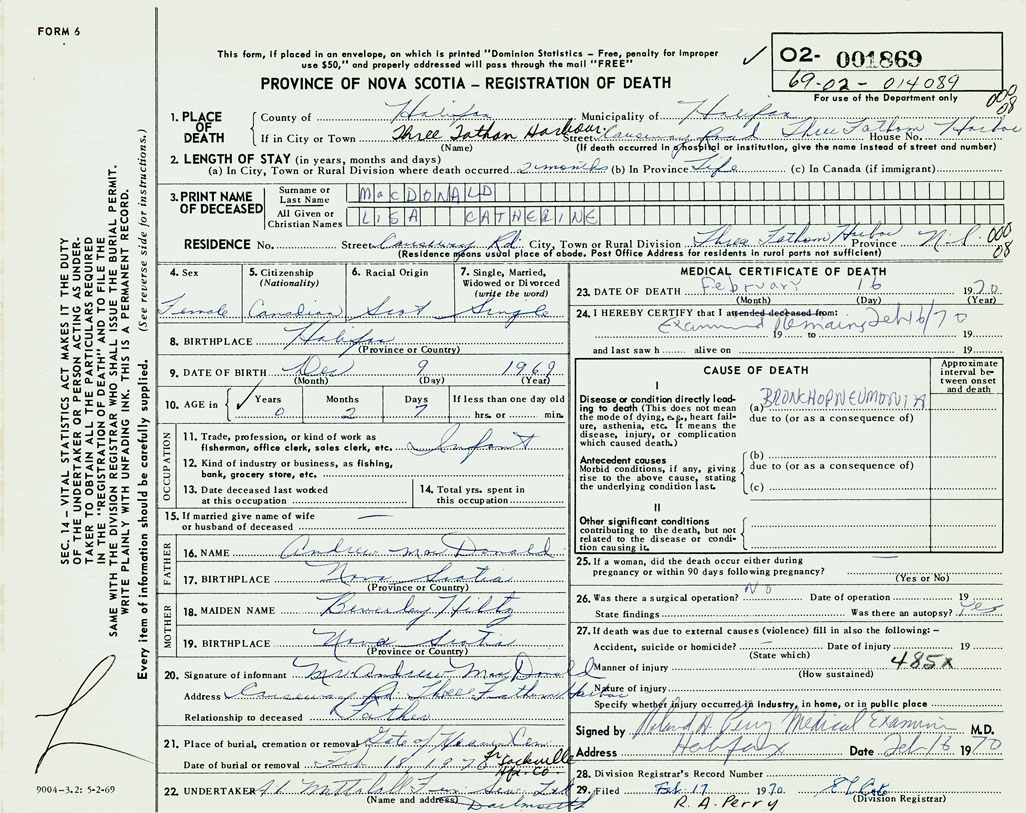 FORM 6
This form, if placed in an envelope, on which is printed "Dominion Statistics – Free, penalty for improper
use $50," and properly addressed will pass through the mail "FREE"
PROVINCE OF NOVA SCOTIA – REGISTRATION OF DEATH
✓ O2- 001869
69-02-014089
For use of the Department only
000
08
1. PLACE OF DEATH
County of Halifax Municipality of Halifax
If in City or Town Three Fathom Harbour Street Causeway Road Three Fathom Harbor House No.
(Name) (If death occurred in a hospital or institution, give the name instead of street and number)
2. LENGTH OF STAY (in years, months and days)
(a) In City, Town or Rural Division where death occurred 2 months (b) In Province Life (c) In Canada (if immigrant)
3. PRINT NAME OF DECEASED
Surname or Last Name MacDONALD
All Given or Christian Names LISA CATHERINE
RESIDENCE No. Street Causeway Rd. City, Town or Rural Division Three Fathom Harbor Province N.S. 000
08
(Residence means usual place of abode. Post Office Address for residents in rural parts not sufficient)
4. Sex
Female
5. Citizenship
(Nationality)
Canadian
6. Racial Origin
Scot
7. Single, Married,
Widowed or Divorced
(write the word)
Single
8. BIRTHPLACE Halifax
(Province or Country)
9. DATE OF BIRTH Dec 9 1969
(Month) (Day) (Year)
10. AGE in ✓ Years Months Days If less than one day old
0 2 7 hrs. or min.
OCCUPATION
11. Trade, profession, or kind of work as
fisherman, office clerk, sales clerk, etc. Infant
12. Kind of industry or business, as fishing,
bank, grocery store, etc.
13. Date deceased last worked
at this occupation
14. Total yrs. spent in
this occupation
15. If married give name of wife
or husband of deceased —
FATHER
16. NAME Andrew MacDonald
17. BIRTHPLACE Nova Scotia
(Province or Country)
MOTHER
18. MAIDEN NAME Beverley Hiltz
19. BIRTHPLACE Nova Scotia
(Province or Country)
20. Signature of informant Mr. Andrew MacDonald
Address Causeway Rd. Three Fathom Harbor
Relationship to deceased Father
21. Place of burial, cremation or removal Gate of Heaven Cem.
Sackville
Date of burial or removal Feb 18, 1970 Hfx. Co.
22. UNDERTAKER
(Name and address) Dartmouth
MEDICAL CERTIFICATE OF DEATH
23. DATE OF DEATH February 16 1970
(Month) (Day) (Year)
24. I HEREBY CERTIFY that I attended deceased from:
Examined Remains Feb 16/70
19 to 19
and last saw h alive on 19
CAUSE OF DEATH
Approximate interval between onset and death
I
Disease or condition directly leading to death (This does not mean the mode of dying, e.g., heart failure, asthenia, etc. It means the disease, injury, or complication which caused death.)
(a) BRONCHOPNEUMONIA
due to (or as a consequence of)
Antecedent causes
Morbid conditions, if any, giving rise to the above cause, stating the underlying condition last.
(b)
due to (or as a consequence of)
(c)
II
Other significant conditions
contributing to the death, but not related to the disease or condition causing it.
25. If a woman, did the death occur either during
pregnancy or within 90 days following pregnancy? —
(Yes or No)
26. Was there a surgical operation? No Date of operation 19
State findings Was there an autopsy? Yes
27. If death was due to external causes (violence) fill in also the following: –
Accident, suicide or homicide? – Date of injury 19
(State which)
485X
Manner of injury
(How sustained)
Nature of injury
Specify whether injury occurred in industry, in home, or in public place
Signed by Roland A. Perry Medical Examiner M.D.
Address Halifax Date Feb 16 1970
28. Division Registrar's Record Number
29. Filed Feb. 17 1970.
R. A. Perry (Division Registrar)
SEC. 14 – VITAL STATISTICS ACT MAKES IT THE DUTY
OF THE UNDERTAKER OR PERSON ACTING AS UNDER-
TAKER TO OBTAIN ALL THE PARTICULARS REQUIRED
IN THE "REGISTRATION OF DEATH" AND TO FILE THE
SAME WITH THE DIVISION REGISTRAR WHO SHALL ISSUE THE BURIAL PERMIT.
WRITE PLAINLY WITH UNFADING INK. THIS IS A PERMANENT RECORD.
Every item of information should be carefully supplied. (See reverse side for instructions.)
9004-3.2: 5-2-69